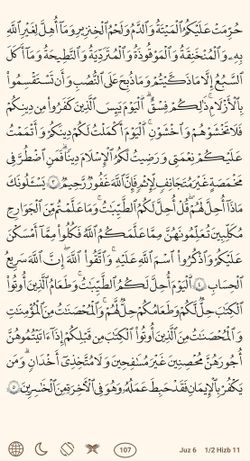 حُرِّمَتْ عَلَيْكُمُ ٱلْمَيْتَةُ وَٱلدَّمُ وَلَحْمُ ٱلْخِنزِيرِ وَمَآ أُهِلَّ لِغَيْرِ ٱللَّهِ
بِهِۦ وَٱلْمُنْخَنِقَةُ وَٱلْمَوْقُوذَةُ وَٱلْمُتَرَدِّيَةُ وَٱلنَّطِيحَةُ وَمَآ أَكَلَ
ٱلسَّبُعُ إِلَّا مَا ذَكَّيْتُمْ وَمَا ذُبِحَ عَلَى ٱلنُّصُبِ وَأَن تَسْتَقْسِمُوا۟
بِٱلْأَزْلَٰمِ ۚ ذَٰلِكُمْ فِسْقٌ ۗ ٱلْيَوْمَ يَئِسَ ٱلَّذِينَ كَفَرُوا۟ مِن دِينِكُمْ
فَلَا تَخْشَوْهُمْ وَٱخْشَوْنِ ۚ ٱلْيَوْمَ أَكْمَلْتُ لَكُمْ دِينَكُمْ وَأَتْمَمْتُ
عَلَيْكُمْ نِعْمَتِى وَرَضِيتُ لَكُمُ ٱلْإِسْلَٰمَ دِينًا ۚ فَمَنِ ٱضْطُرَّ فِى
مَخْمَصَةٍ غَيْرَ مُتَجَانِفٍ لِّإِثْمٍ ۙ فَإِنَّ ٱللَّهَ غَفُورٌ رَّحِيمٌ ٣ يَسْـَٔلُونَكَ
مَاذَآ أُحِلَّ لَهُمْ ۖ قُلْ أُحِلَّ لَكُمُ ٱلطَّيِّبَٰتُ ۙ وَمَا عَلَّمْتُم مِّنَ ٱلْجَوَارِحِ
مُكَلِّبِينَ تُعَلِّمُونَهُنَّ مِمَّا عَلَّمَكُمُ ٱللَّهُ ۖ فَكُلُوا۟ مِمَّآ أَمْسَكْنَ
عَلَيْكُمْ وَٱذْكُرُوا۟ ٱسْمَ ٱللَّهِ عَلَيْهِ ۖ وَٱتَّقُوا۟ ٱللَّهَ ۚ إِنَّ ٱللَّهَ سَرِيعُ
ٱلْحِسَابِ ٤ ٱلْيَوْمَ أُحِلَّ لَكُمُ ٱلطَّيِّبَٰتُ ۖ وَطَعَامُ ٱلَّذِينَ أُوتُوا۟
ٱلْكِتَٰبَ حِلٌّ لَّكُمْ وَطَعَامُكُمْ حِلٌّ لَّهُمْ ۖ وَٱلْمُحْصَنَٰتُ مِنَ ٱلْمُؤْمِنَٰتِ
وَٱلْمُحْصَنَٰتُ مِنَ ٱلَّذِينَ أُوتُوا۟ ٱلْكِتَٰبَ مِن قَبْلِكُمْ إِذَآ ءَاتَيْتُمُوهُنَّ
أُجُورَهُنَّ مُحْصِنِينَ غَيْرَ مُسَٰفِحِينَ وَلَا مُتَّخِذِىٓ أَخْدَانٍ ۗ وَمَن
يَكْفُرْ بِٱلْإِيمَٰنِ فَقَدْ حَبِطَ عَمَلُهُۥ وَهُوَ فِى ٱلْءَاخِرَةِ مِنَ ٱلْخَٰسِرِينَ ٥
107 Juz 6 1/2 Hizb 11